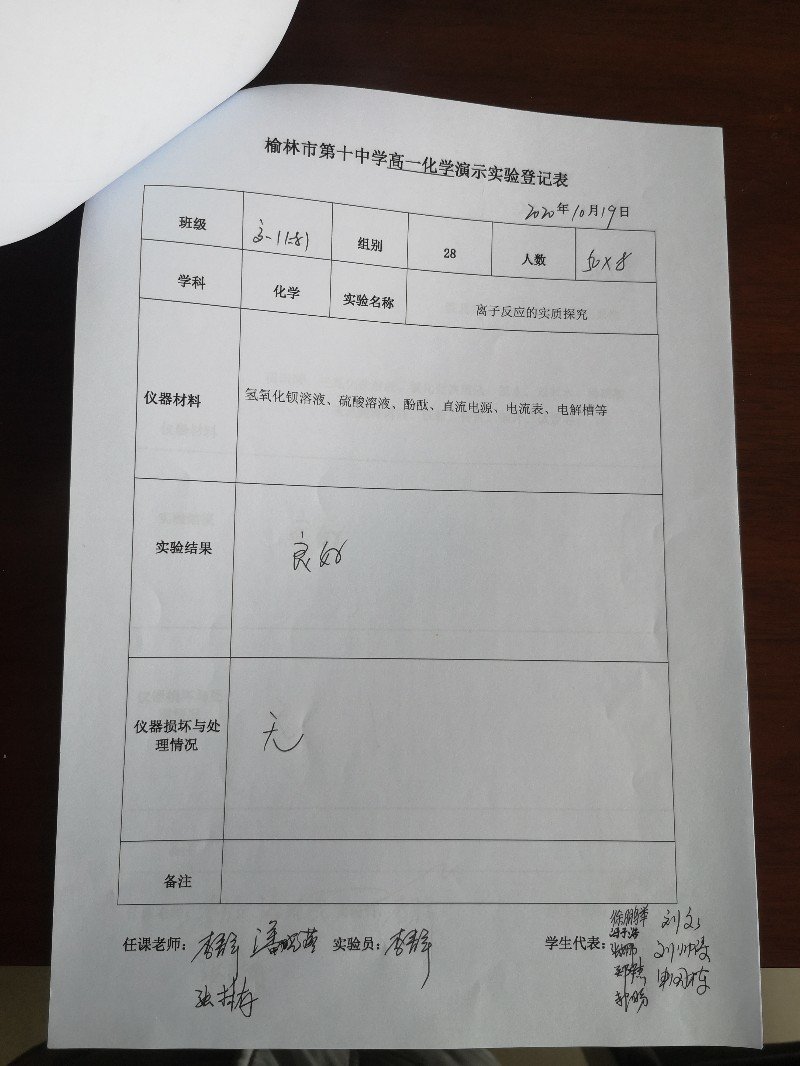 榆林市第十中学高一化学演示实验登记表
2020年10月19日
班级 高一(1-8) 组别 28 人数 50×8
学科 化学 实验名称 离子反应的实质探究
仪器材料 氢氧化钡溶液、硫酸溶液、酚酞、直流电源、电流表、电解槽等
实验结果 良好
仪器损坏与处
理情况 无
备注
任课老师： 实验员： 学生代表：